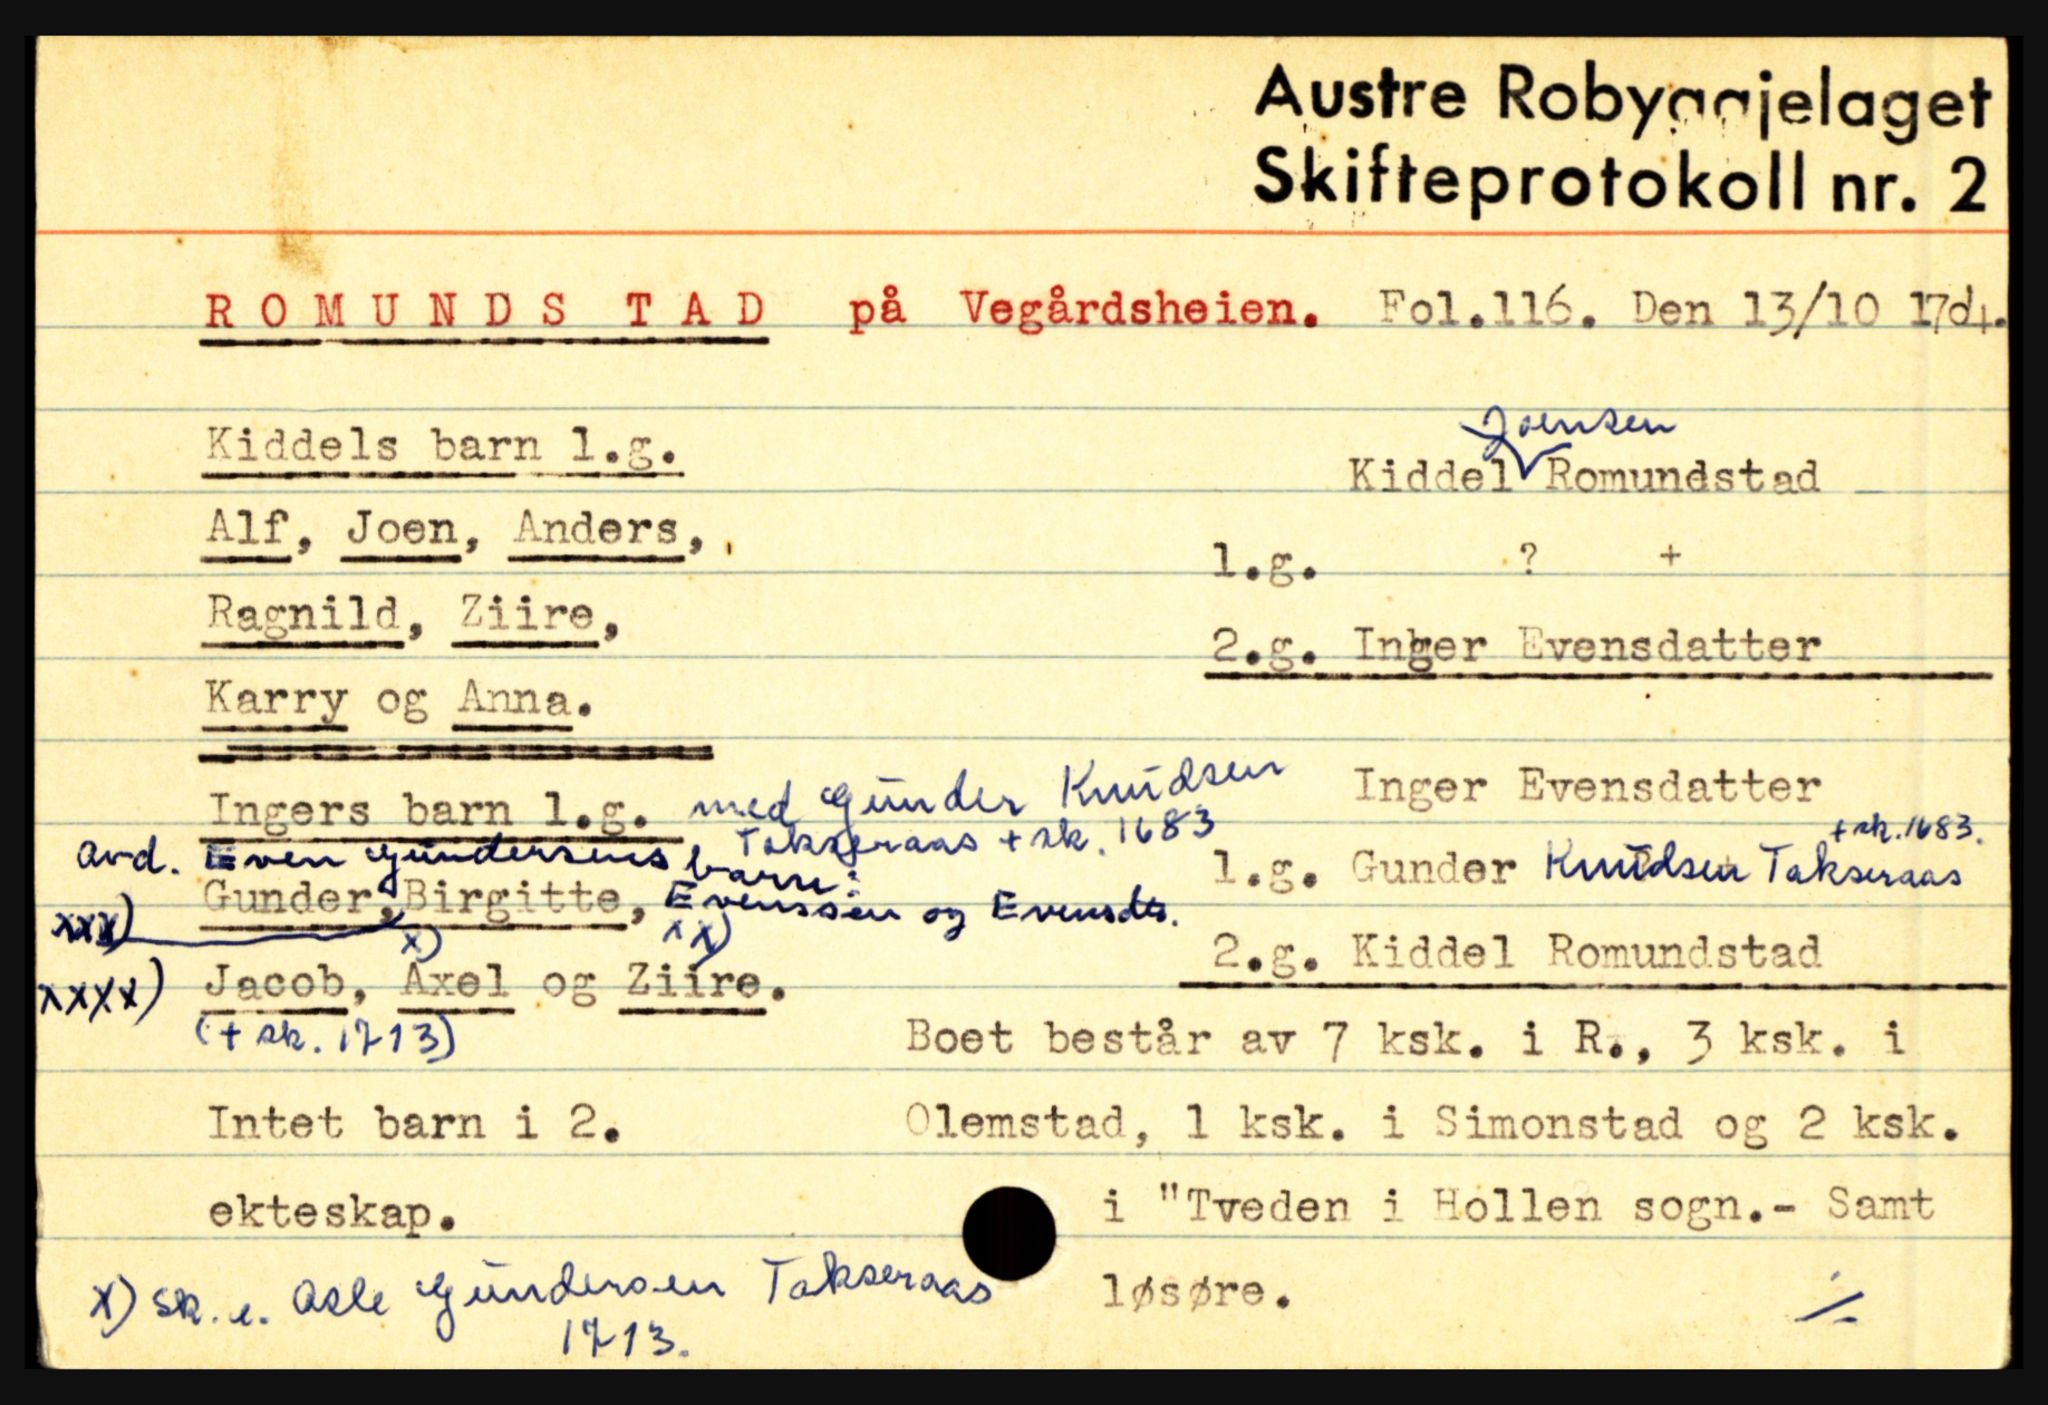 Austre Robyggjelaget
Skifteprotokoll nr. 2
R O M U N D S T A D på Vegårdsheien. Fol.116. Den 13/10 17
Kiddels barn 1.g.
Alf, Joen, Anders,
Ragnild, Ziire,
Karry og Anna.
Ingers barn 1.g. med Gunder Knudsen
Takseraas + sk. 1683
avd. Even Gundersens barn:
Gunder, Birgitte, Evenssen og Evensdtr.
xxx) x) xx)
xxxx) Jacob, Axel og Ziire.
(+ sk. 1713)
Intet barn i 2.
ekteskap.
x) sk. e. Asle Gundersen Takseraas
1713.
Joensen
Kiddel Romundstad
1.g. ? +
2.g. Inger Evensdatter
Inger Evensdatter
+ sk. 1683.
1.g. Gunder Knudsen Takseraas
2.g. Kiddel Romundstad
Boet består av 7 ksk. i R., 3 ksk. i
Olemstad, 1 ksk. i Simonstad og 2 ksk.
i "Tveden i Hollen sogn.- Samt
løsøre.